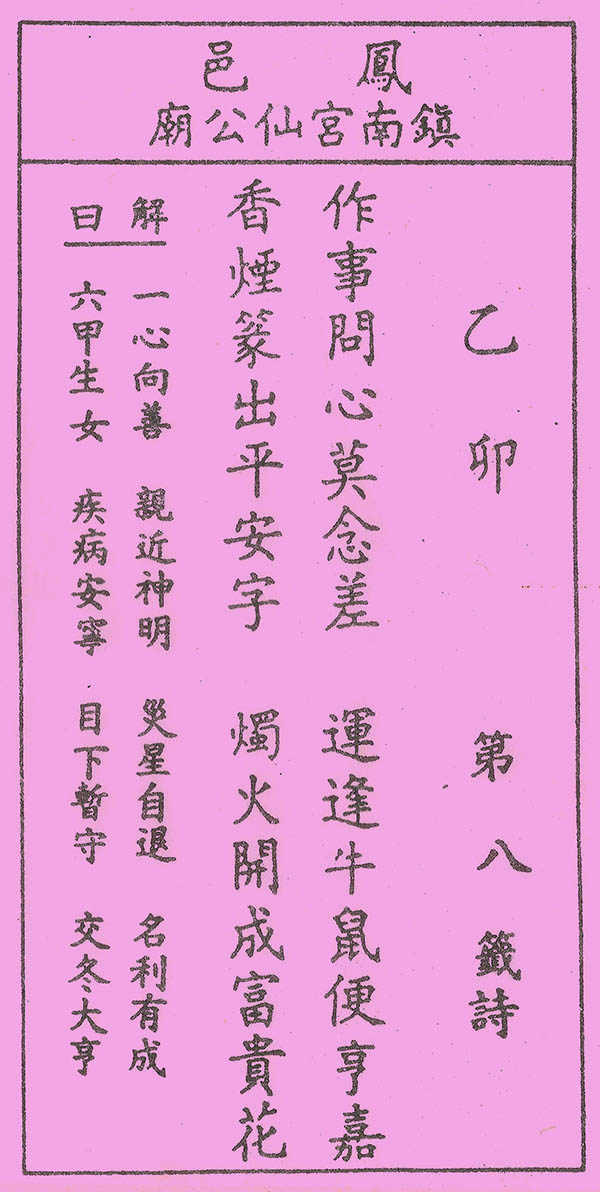 鳳邑
鎮南宮仙公廟
乙卯 第八籤詩
作事問心莫念差 運逢牛鼠便亨嘉
香煙篆出平安字 燭火開成富貴花
解曰
一心向善 親近神明 災星自退 名利有成
六甲生女 疾病安寧 目下暫守 交冬大亨